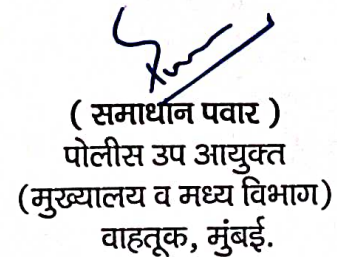 ( समाधान पवार )
पोलीस उप आयुक्त
(मुख्यालय व मध्य विभाग)
वाहतूक, मुंबई.